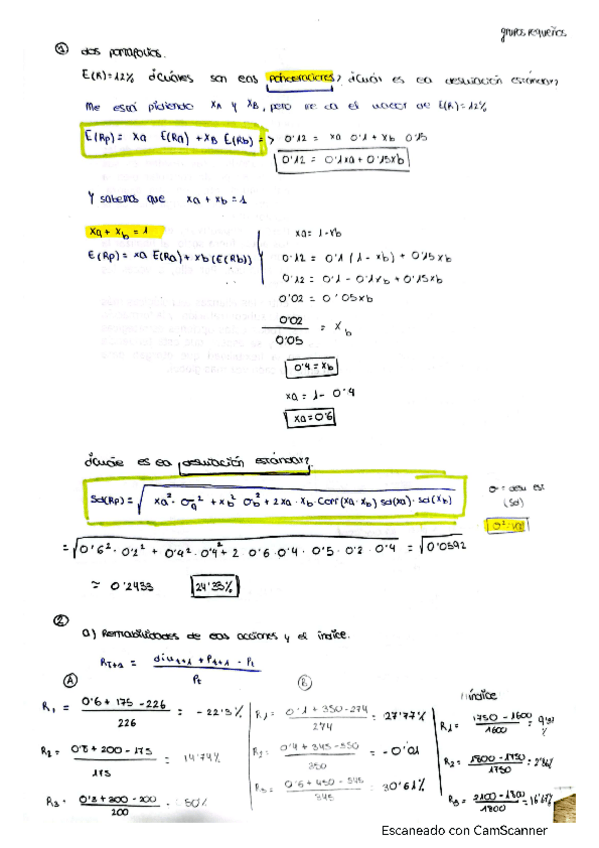 grupos pequeños
① dos portafolios.
E(R)=12% ¿Cuáles son las ponderaciones? ¿Cuál es la desviación estándar?
Me está pidiendo xA y xB, pero me da el valor de E(R)=12%
E(Rp) = xa E(Ra) + xB E(Rb) => 0'12 = xa 0'1 + xb 0'15
0'12 = 0'1xa + 0'15xb
Y sabemos que xa + xb = 1
xa + xb = 1
E(Rp) = xa E(Ra) + xb (E(Rb))
xa = 1 - xb
0'12 = 0'1 (1 - xb) + 0'15xb
0'12 = 0'1 - 0'1xb + 0'15xb
0'02 = 0'05xb
0'02 / 0'05 = xb
0'4 = xb
xa = 1 - 0'4
xa = 0'6
¿Cuál es la desviación estándar?
Sd(Rp) = √ xa² · σa² + xb² σb² + 2xa · xb · Corr(xa · xb) sd(xa) · sd(xb)
σ = desv est
(Sd)
= √ 0'6² · 0'2² + 0'4² · 0'4² + 2 · 0'6 · 0'4 · 0'5 · 0'2 · 0'4 = √ 0'0592
≈ 0'2433 24'33%
②
a) Rentabilidades de las acciones y el índice.
Rt+1 = divt+1 + Pt+1 - Pt / Pt
Ⓐ
R1 = 0'6 + 175 - 226 / 226 = - 22'3%
R2 = 0'8 + 200 - 175 / 175 = 14'74%
R3 = 0'8 + 300 - 200 / 200 = 50%
Ⓑ
R1 = 0'1 + 350 - 274 / 274 = 27'77%
R2 = 0'4 + 345 - 350 / 350 = - 0'01
R3 = 0'6 + 450 - 345 / 345 = 30'61%
índice
R1 = 1750 - 1600 / 1600 =
R2 = 1800 - 1750 / 1750 = 2'86%
R3 = 2100 - 1800 / 1800 = 16'67%
Escaneado con CamScanner